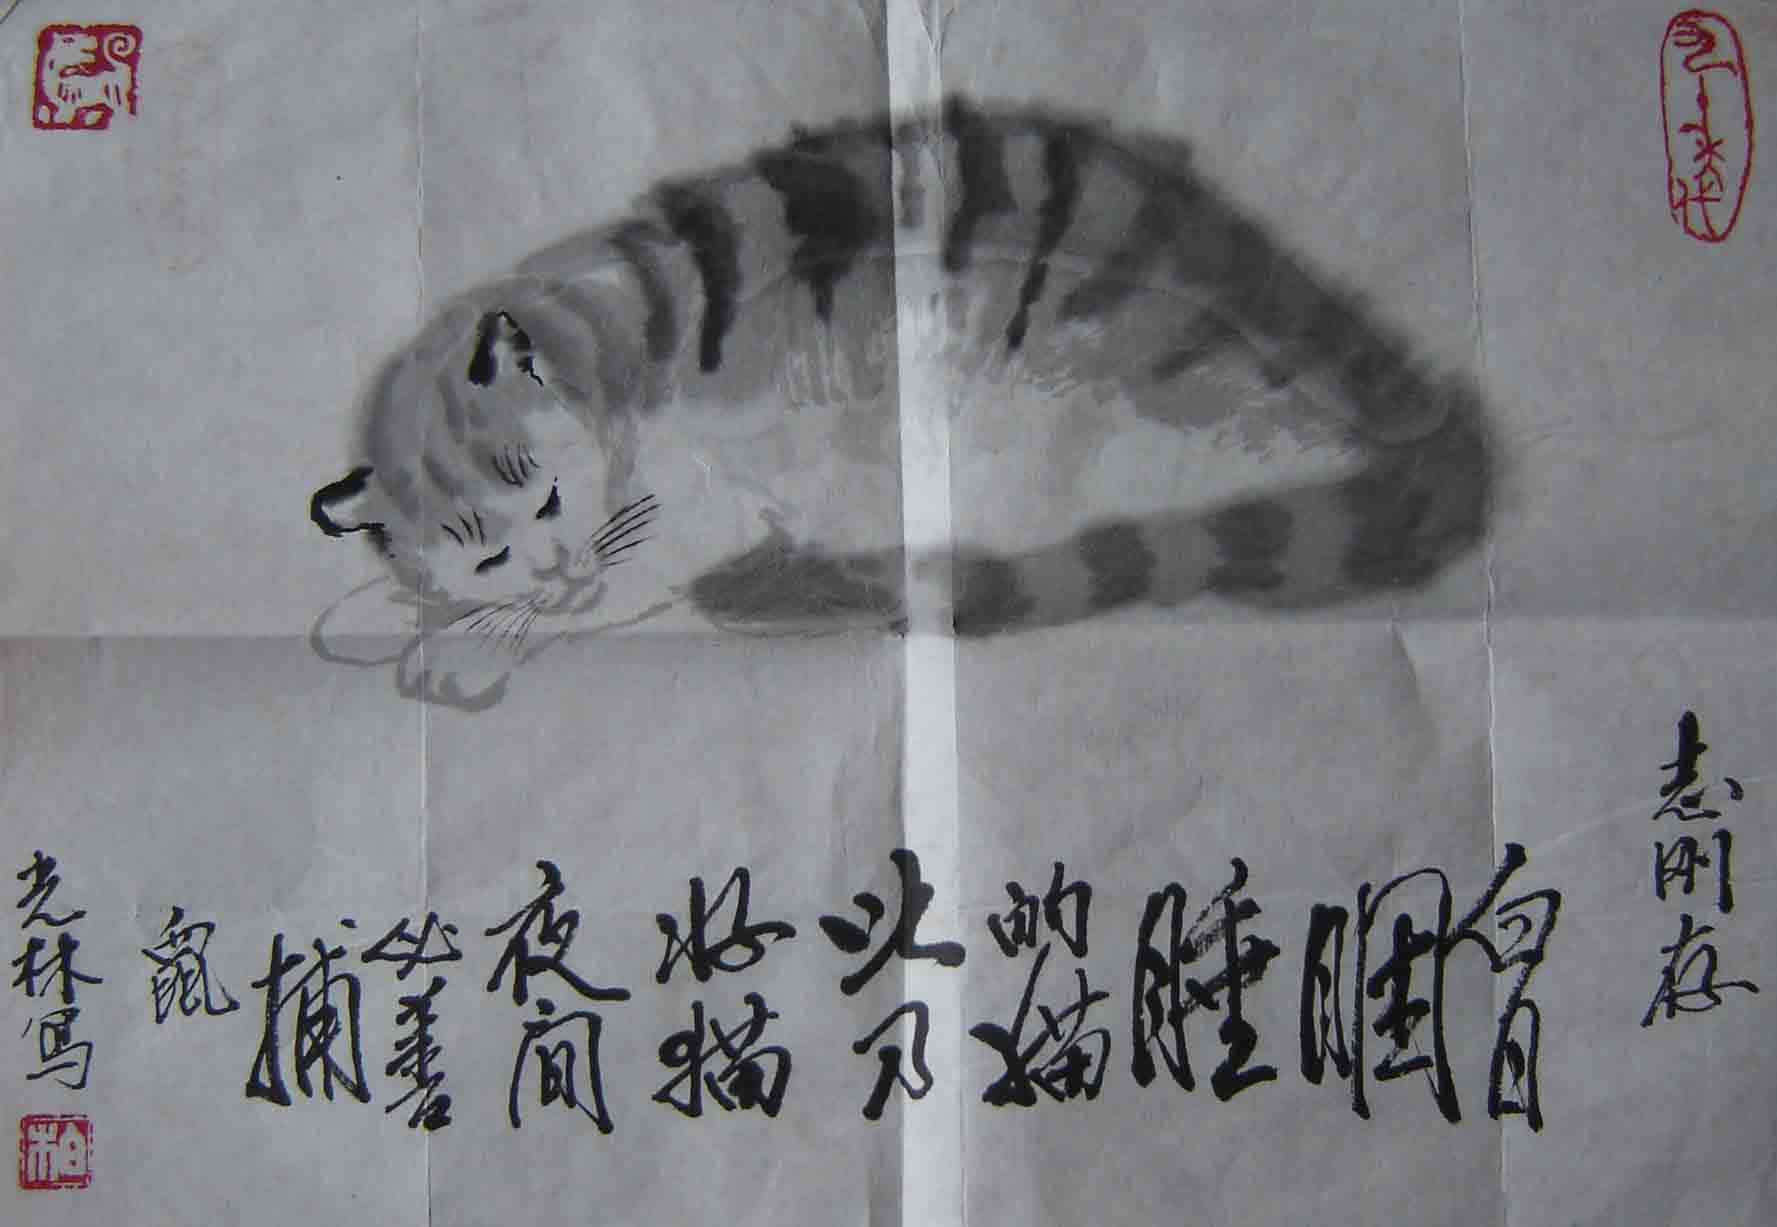 志刚存
白日
睏
睡
的猫
此乃
好猫
夜间
必善
捕
鼠
光林写
柏